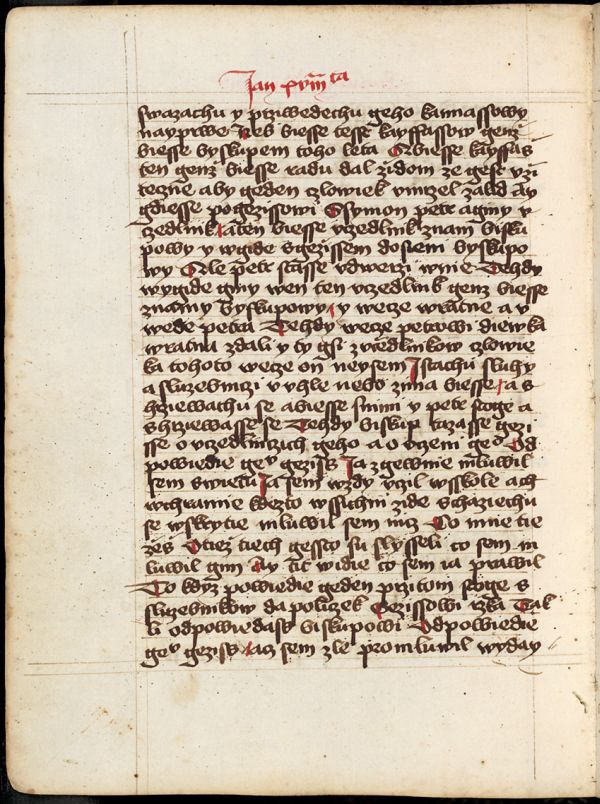 Jan xviii ta
swazachu y prziwedechu geho kannassowy
nayprwe Neb biesse tesst kayffassow genz
biesse byskupem toho leta A biesse kayffas
ten genz biesse radu dal zidom ze gest vzi
teczne aby geden czlowiek vmrzel za lid Ay
gdiesse po gezissowi Ssymon petr a giny v
czedlnik a ten biesse vczedlnik znam bisku
powy y wgide s gezissem do sieni byskupo
wy Ale petr stasse v dwerzi wnie Tehdy
wygide giny wen ten vczedlnik genz biesse
znamy byskupowy y wecze wratne a v
wede petra Tehdy wecze petrowi diewka
wratna zdali y ty gsi z vczedlnikow czlowie
ka tohoto wecze on neysem J stachu sluhy
a sluzebniczi v vhle nebo zima biesse a s
hrziewachu se a biesse s nimi y petr stoge a
shrziewasse se Tehdy biskup taza sse gezi
sse o vczedlniczich geho a o vczeni geo Od
powiedie gev gezis Ja zgewnie mluwil
sem swietu Ja sem wzdy vczil w sskole a ch
w chramie kdezto wssichni zide schaziechu
se w skrytie mluwil sem nicz Co mne tie
zes Otiez tiech gessto su slysseli co sem m
luwil gim Ay tit widie co sem ia prawil
To kdyz powiedie geden przitom stoge s
sluzebnikow da policzek Gezissowi rzka Tak
li odpowiedass biskupowi Odpowiedie
gev geziss acz sem zle promluwil wyday